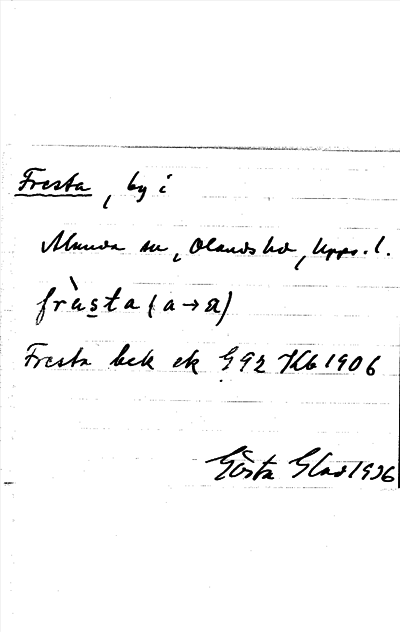 Fresta, by i
Almunda sn, Olands hd, Upps. l.
fràsta (a → a)
Fresta bek ek G 92 Kb 1906
Gösta Glad 1936